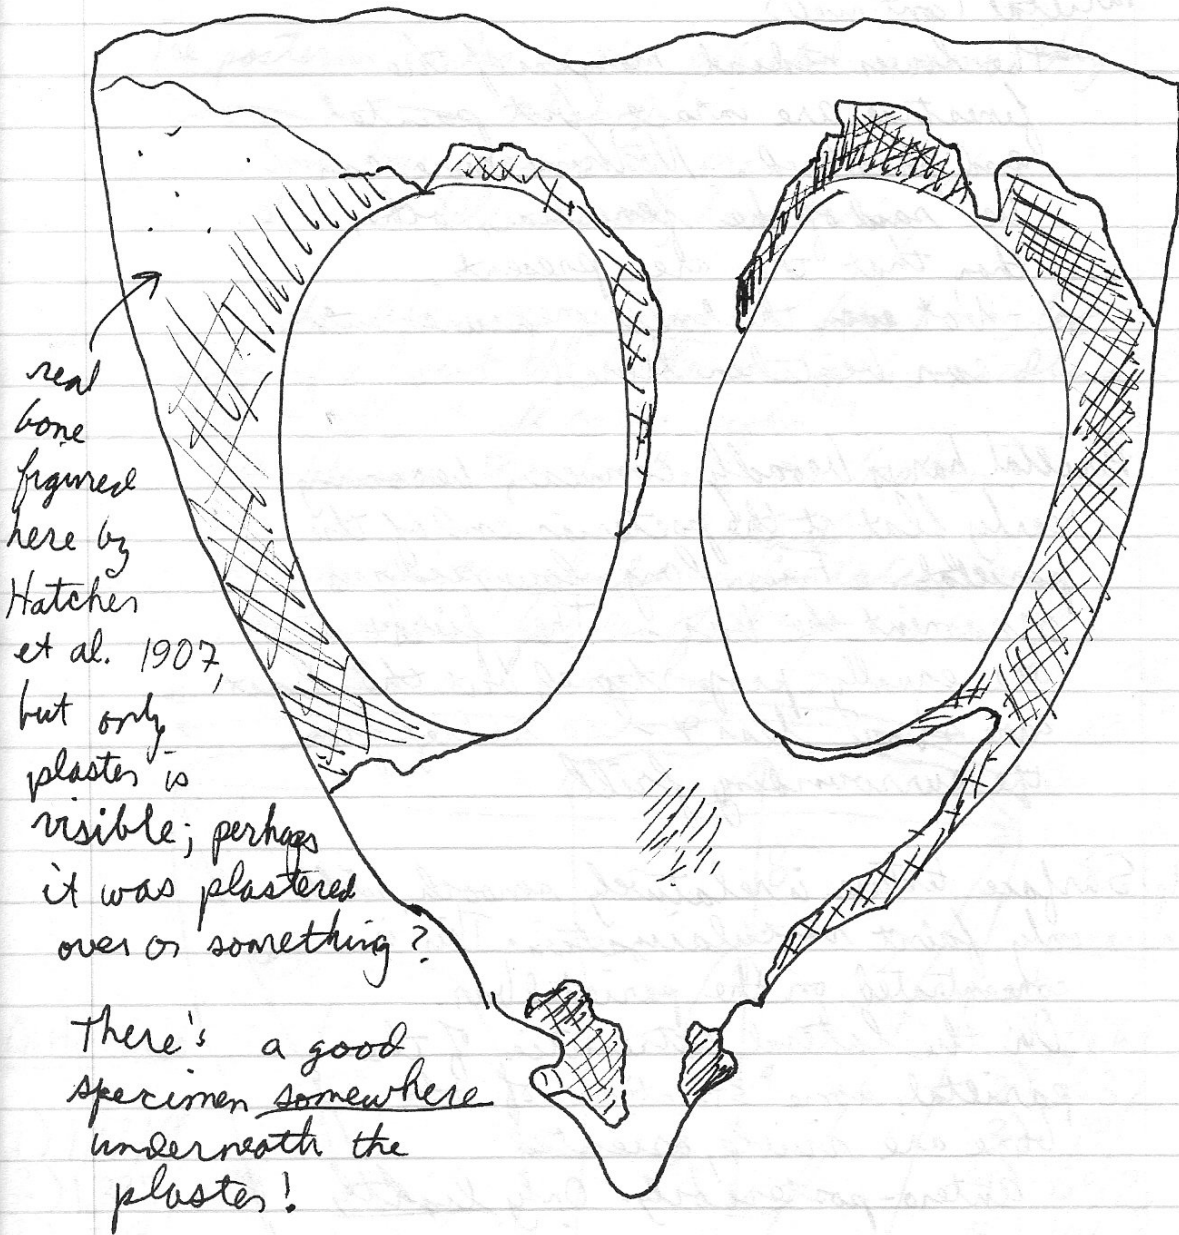 real
bone
figured
here by
Hatcher
et al. 1907,
but only
plaster is
visible; perhaps
it was plastered
over or something?
There's a good
specimen somewhere
underneath the
plaster!